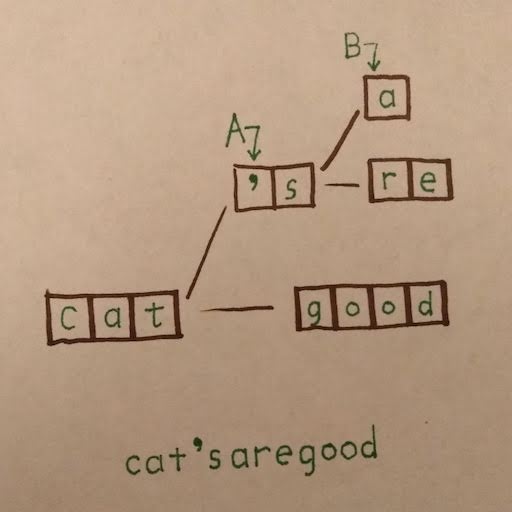 B
a
A
's
re
cat
good
cat'saregood